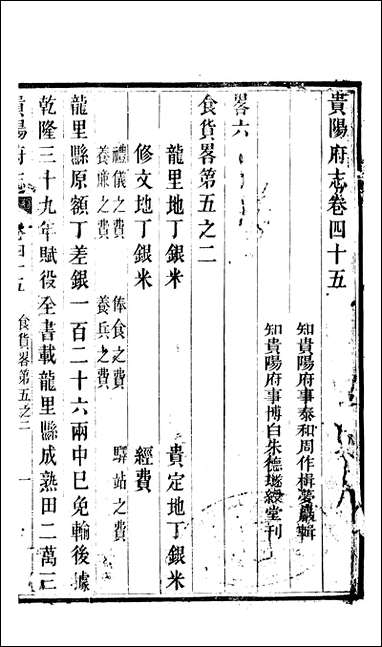 貴陽府志卷四十五
知貴陽府事泰和周作楫夢巖輯
知貴陽府事博白朱德璲綬堂刊
畧六
食貨畧第五之二
龍里地丁銀米 貴定地丁銀米
修文地丁銀米 經費
禮儀之費 俸食之費 驛站之費
養廉之費 養兵之費
龍里縣原額丁差銀一百二十六兩中巳免輸後據
乾隆三十九年賦役全書載龍里縣成熟田二萬三
貴陽府志 卷四十五 食貨畧第五之二 一